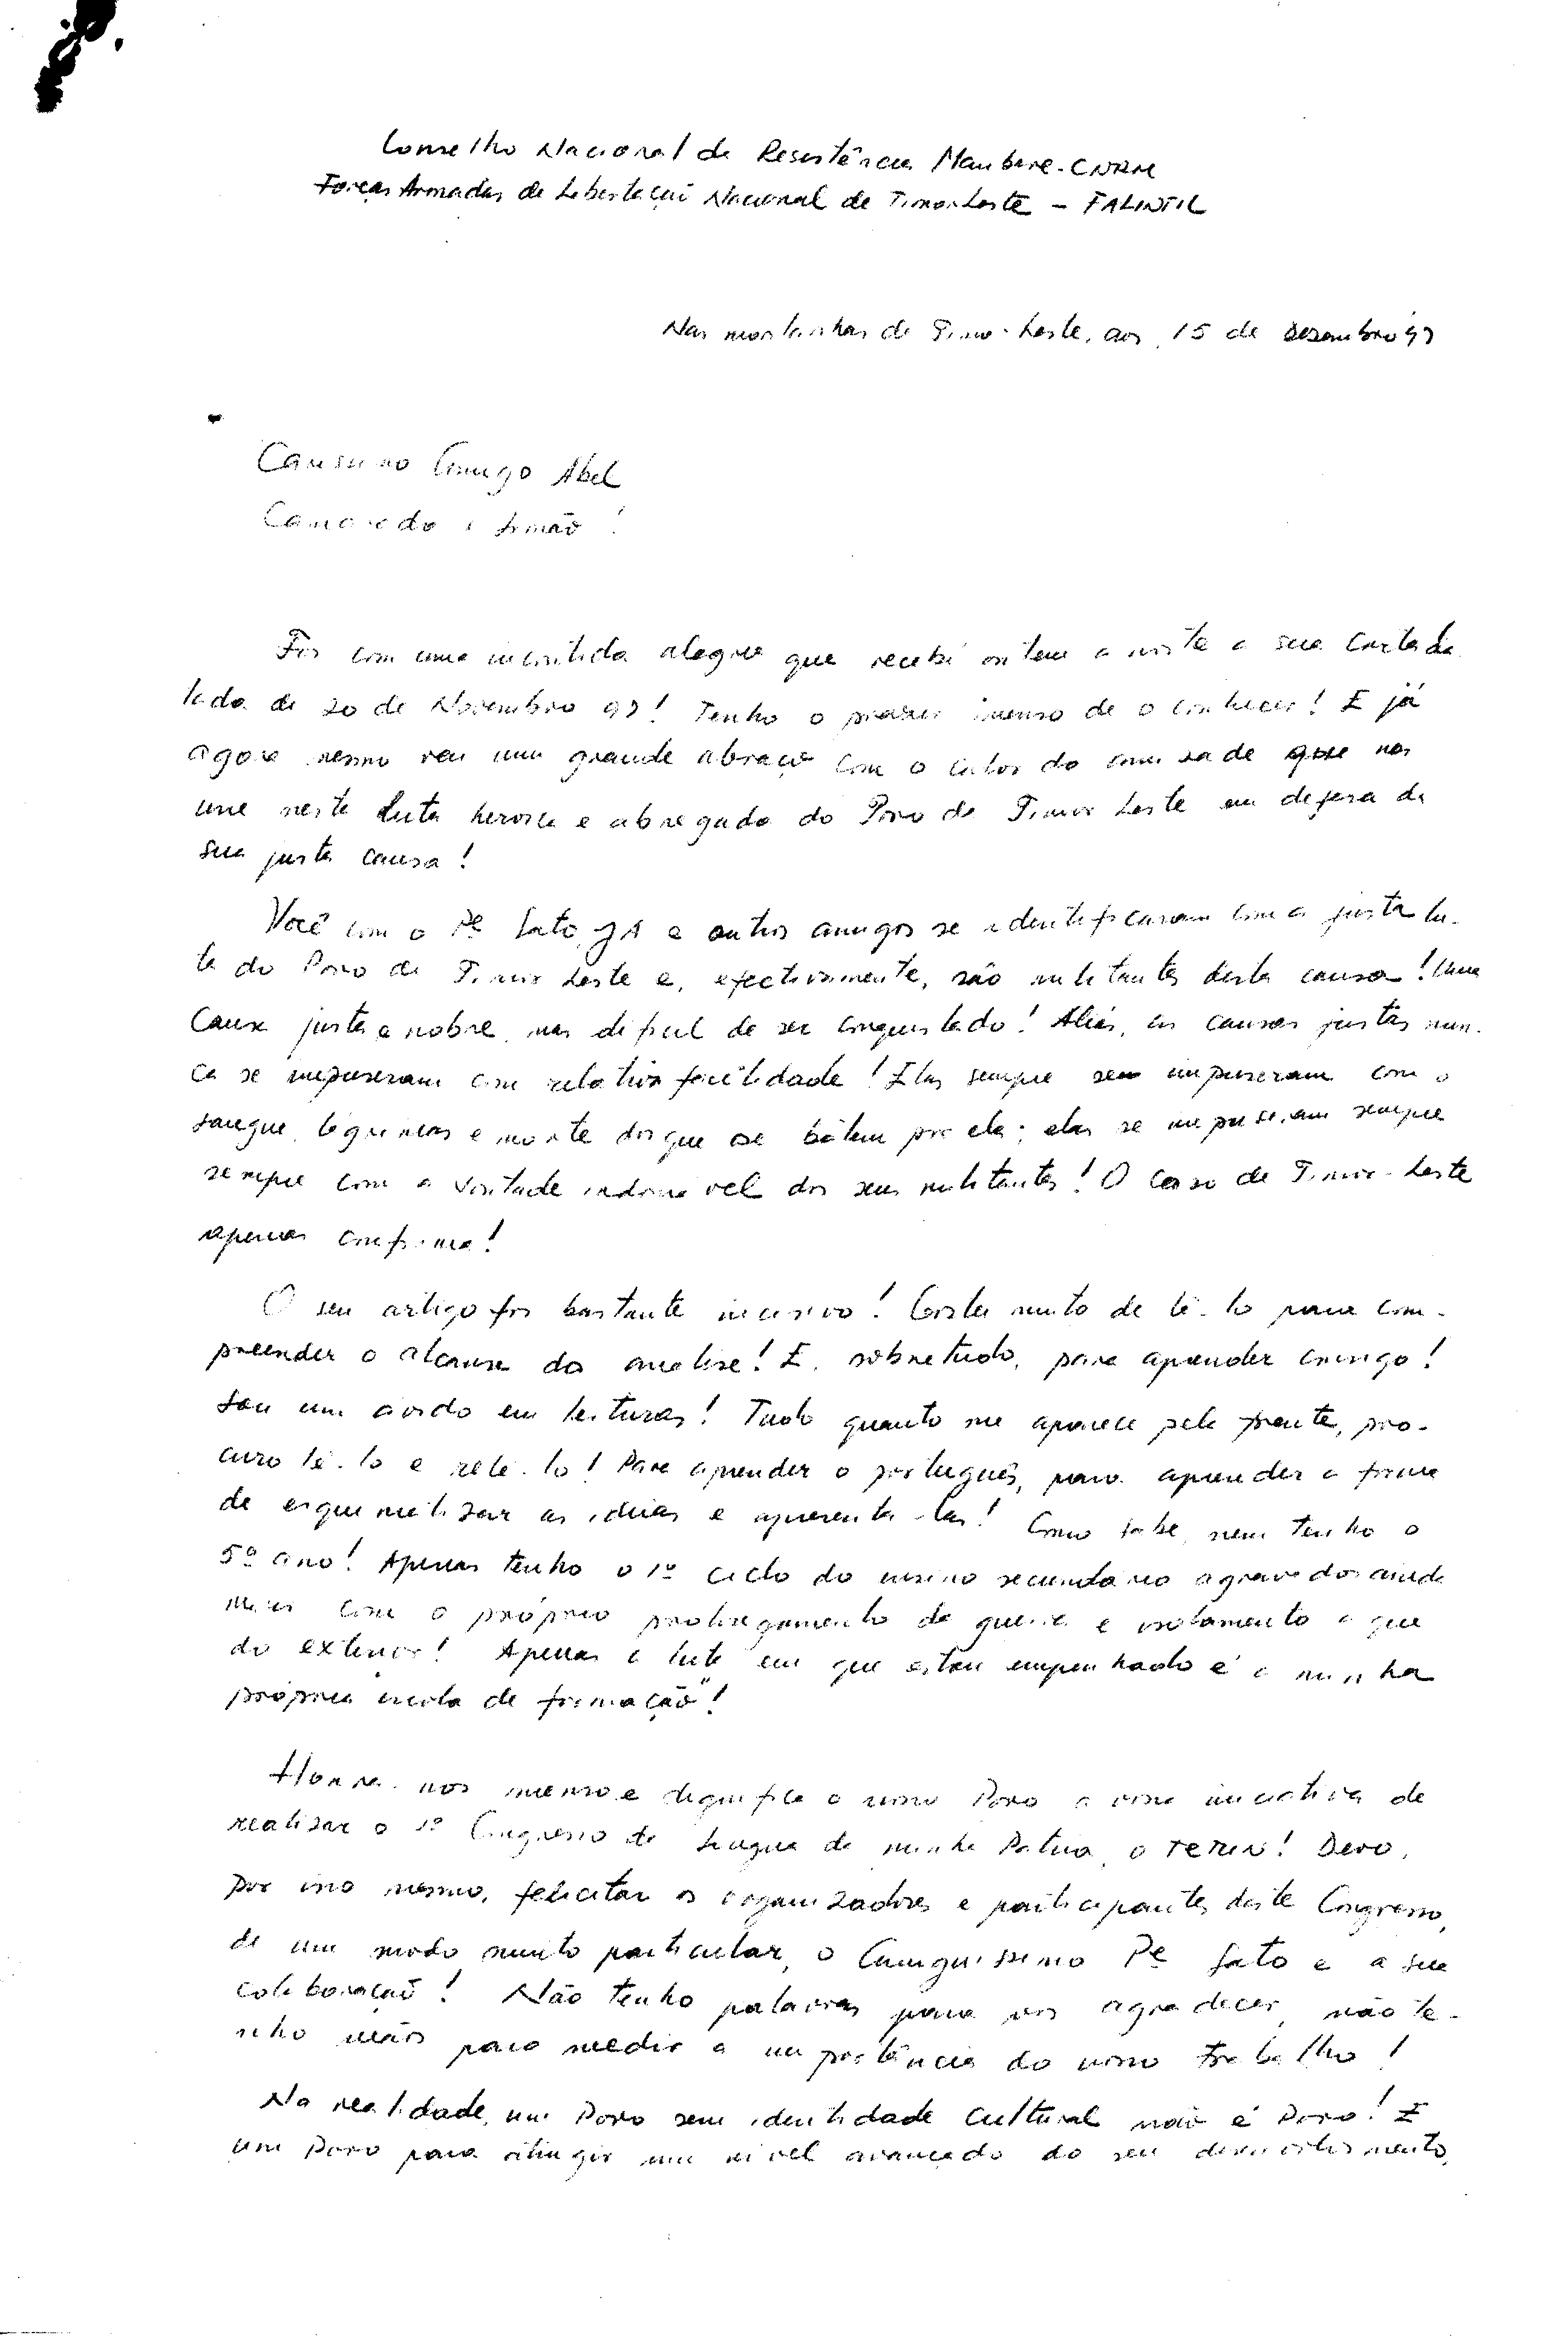 Conselho Nacional de Resistência Maubere - CNRM
Forças Armadas de Libertação Nacional de Timor-Leste - FALINTIL
Nas montanhas de Timor-Leste, aos 15 de Dezembro 97
Caríssimo Amigo Abel
Camarada e Irmão!
Foi com uma incontida alegria que recebi ontem a noite a sua carta da-
tada de 20 de Novembro 97! Tenho o prazer imenso de o conhecer! E já
agora mesmo vai um grande abraço com o calor da que nos
une nesta luta heroica e abnegada do Povo de Timor Leste em defesa da
sua justa causa!
Você com o Pe e outros amigos se identificaram com a justa lu-
ta do Povo de Timor Leste e, efectivamente, são militantes desta causa! Uma
causa justa e nobre, mas dificil de ser conquistada! Aliás, as causas justas nun-
ca se impuseram com relativa facilidade! Elas sempre se impuseram com o
sangue, lágrimas e morte dos que se batem por ela; elas se impuseram sempre
sempre com a vontade indomável dos seus militantes! O caso de Timor-Leste
apenas confirma!
O seu artigo foi bastante incisivo! Gostei muito de lê-lo para com-
preender o alcance da analise! E, sobretudo, para aprender consigo!
Sou um ávido em leituras! Tudo quanto me aparece pela frente, pro-
curo lê-lo e relê-lo! Para aprender o português, para aprender a forma
de esquematizar as ideias e apresenta-las! Como sabe, nem tenho o
5º ano! Apenas tenho o 1º ciclo do ensino secundário agravados ainda
mais com o próprio prolongamento da guerra e isolamento a que
do exterior! Apenas a luta em que estou empenhado é a minha
própria escola de formação"!
Honra-nos imenso e dignifica o nosso Povo a vossa iniciativa de
realizar o 1º Congresso da lingua da minha Patria, o TETUN! Devo,
por isso mesmo, felicitar os organizadores e participantes deste Congresso,
de um modo muito particular, o Amiguissimo Pe e a sua
colaboração! Não tenho palavras para vos agradecer, não te-
nho meios para medir a importância do vosso trabalho!
Na realidade, um Povo sem identidade cultural não é Povo! E
um Povo para atingir um nivel avançado do seu desenvolvimento,